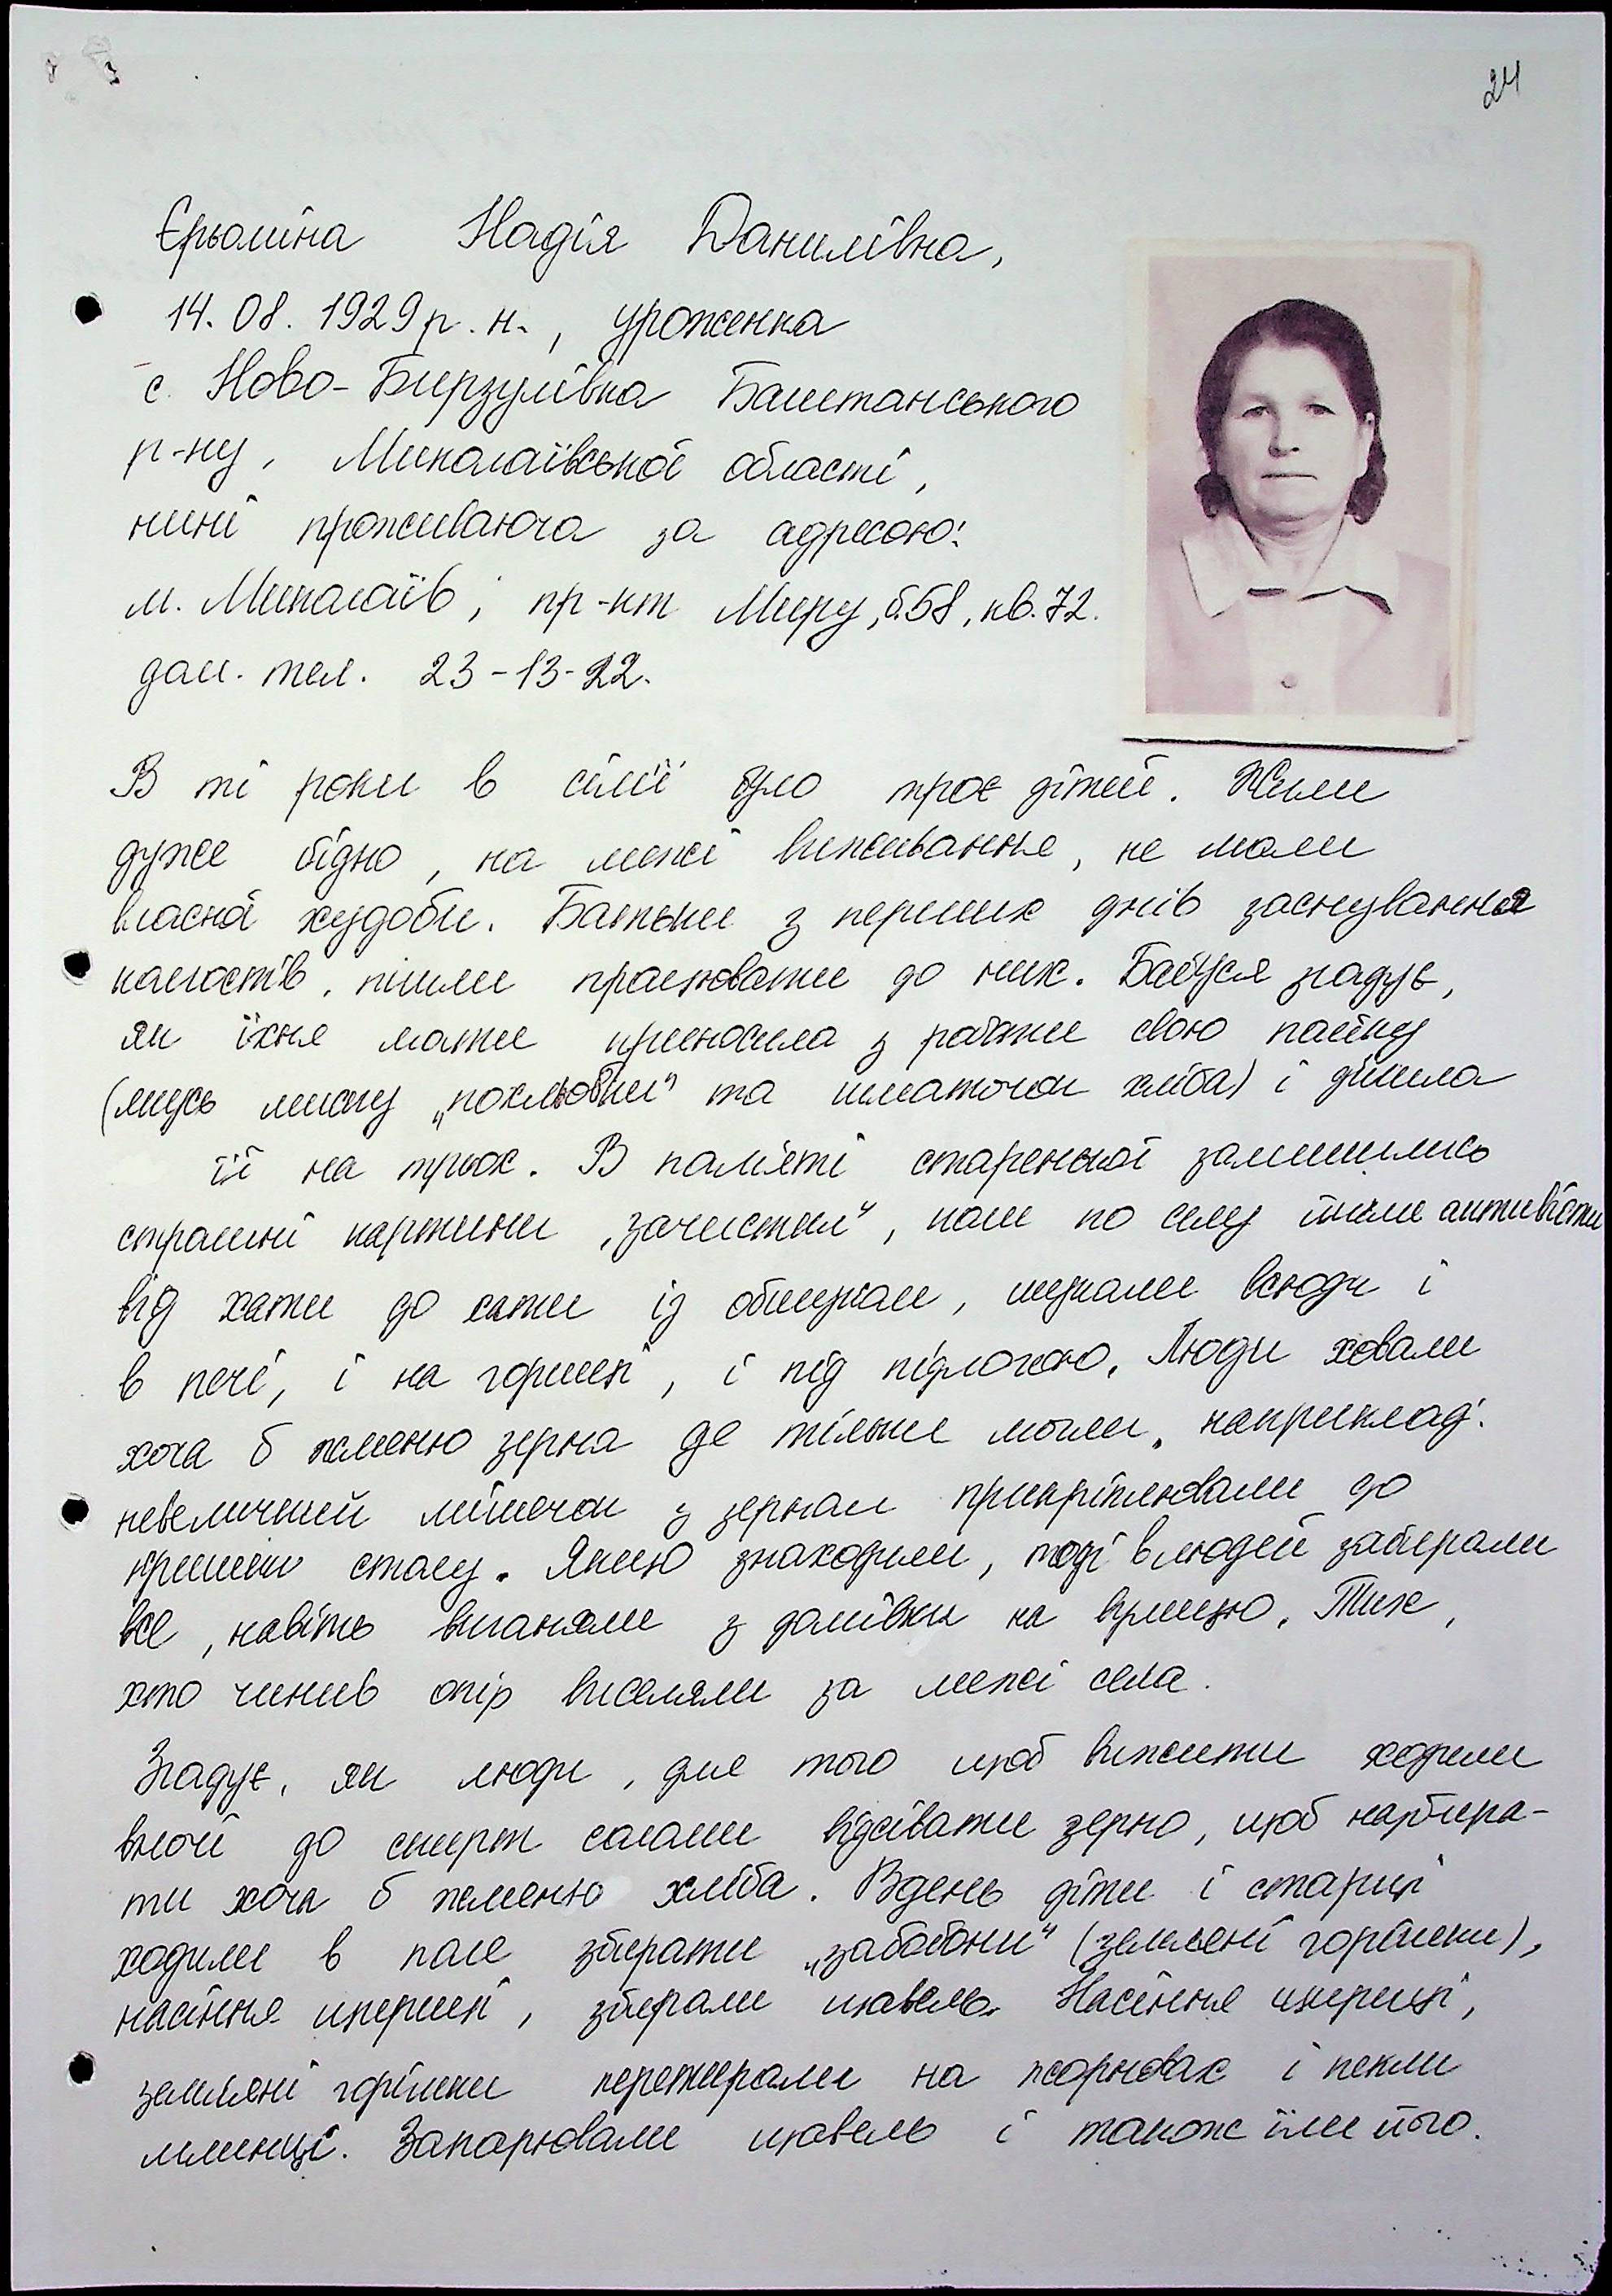 24
Єрьоміна Надія Данилівна,
14.08.1929 р.н., уроженка
с. Ново-Бирзулівка Баштанського
р-ну, Миколаївської області,
нині проживаюча за адресою:
м. Миколаїв, пр-кт Миру, б.58, кв.72.
дом. тел. 23-13-22.
В ті роки в сім'ї було троє дітей. Жили
дуже бідно, на межі виживання, не мали
власної худоби. Батьки з перших днів заснування
колгоспів, пішли працювати до них. Бабуся згадує,
як їхня мати приносила з роботи свою пайку
(якусь миску „похльобки" та шматочок хліба) і ділила
її на трьох. В пам'яті старенької залишились
страшні картини „зачистки", коли по селу йшли активісти
від хати до хати із обшуком, шукали всюди і
в печі, і на горищі, і під підлогою. Люди ховали
хоча б жменю зерна де тільки могли, наприклад:
невеличкий мішечок з зерном прикріплювали до
кришки столу. Якщо знаходили, тоді в людей забирали
все, навіть виганяли з домівки на вулицю. Тих,
хто чинив опір виселяли за межі села.
Згадує, як люди, для того щоб вижити ходили
вночі до скирт соломи відсівати зерно, щоб назбира-
ти хоча б жменю хліба. Вдень діти і старці
ходили в поле збирати „забобони" (земляні горішки),
насіння щириці, збирали щавель. Насіння щириці,
земляні горішки перетирали на жорновах і пекли
млинці. Запарювали щавель і також їли його.